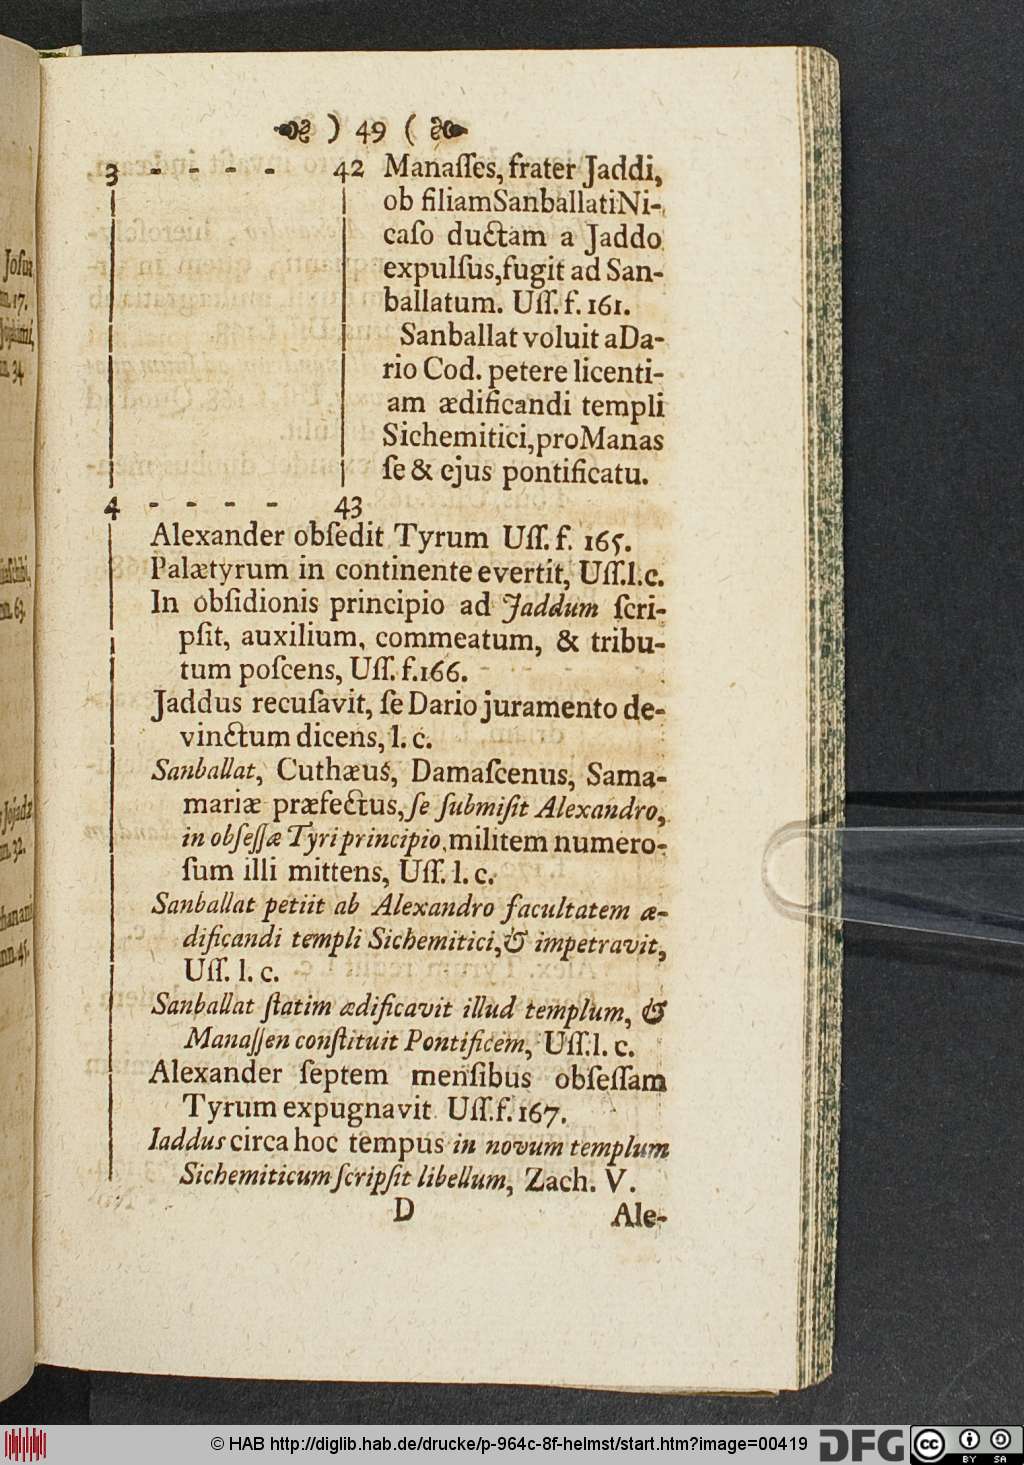 ) 49 (
3 - - - - 42 Manaſſes, frater Jaddi,
ob filiamSanballatiNi-
caſo ductam a Jaddo
expulſus,fugit ad San-
ballatum. Uſſ. f. 161.
Sanballat voluit aDa-
rio Cod. petere licenti-
am ædificandi templi
Sichemitici,proManas
ſe & ejus pontificatu.
4 - - - - 43
Alexander obſedit Tyrum Uſſ. f. 165.
Palætyrum in continente evertit, Uſſ.l.c.
In obſidionis principio ad Jaddum ſcri-
pſit, auxilium, commeatum, & tribu-
tum poſcens, Uſſ. f.166.
Jaddus recuſavit, ſe Dario juramento de-
vinctum dicens, l. c.
Sanballat, Cuthæus, Damaſcenus, Sama-
mariæ præfectus, ſe ſubmiſit Alexandro,
in obſeſſæ Tyri principio, militem numero-
ſum illi mittens, Uſſ. l. c.
Sanballat petiit ab Alexandro facultatem æ-
dificandi templi Sichemitici,& impetravit,
Uſſ. l. c.
Sanballat ſtatim ædificavit illud templum, &
Manaſſen conſtituit Pontificem, Uſſ.l. c.
Alexander ſeptem menſibus obſeſſam
Tyrum expugnavit Uſſ.f. 167.
Iaddus circa hoc tempus in novum templum
Sichemiticum ſcripſit libellum, Zach. V.
D Ale-
Joſuæ
17.
34
63.
Jojadæ
32.
45.
© HAB http://diglib.hab.de/drucke/p-964c-8f-helmst/start.htm?image=00419
DFG
cc
BY SA